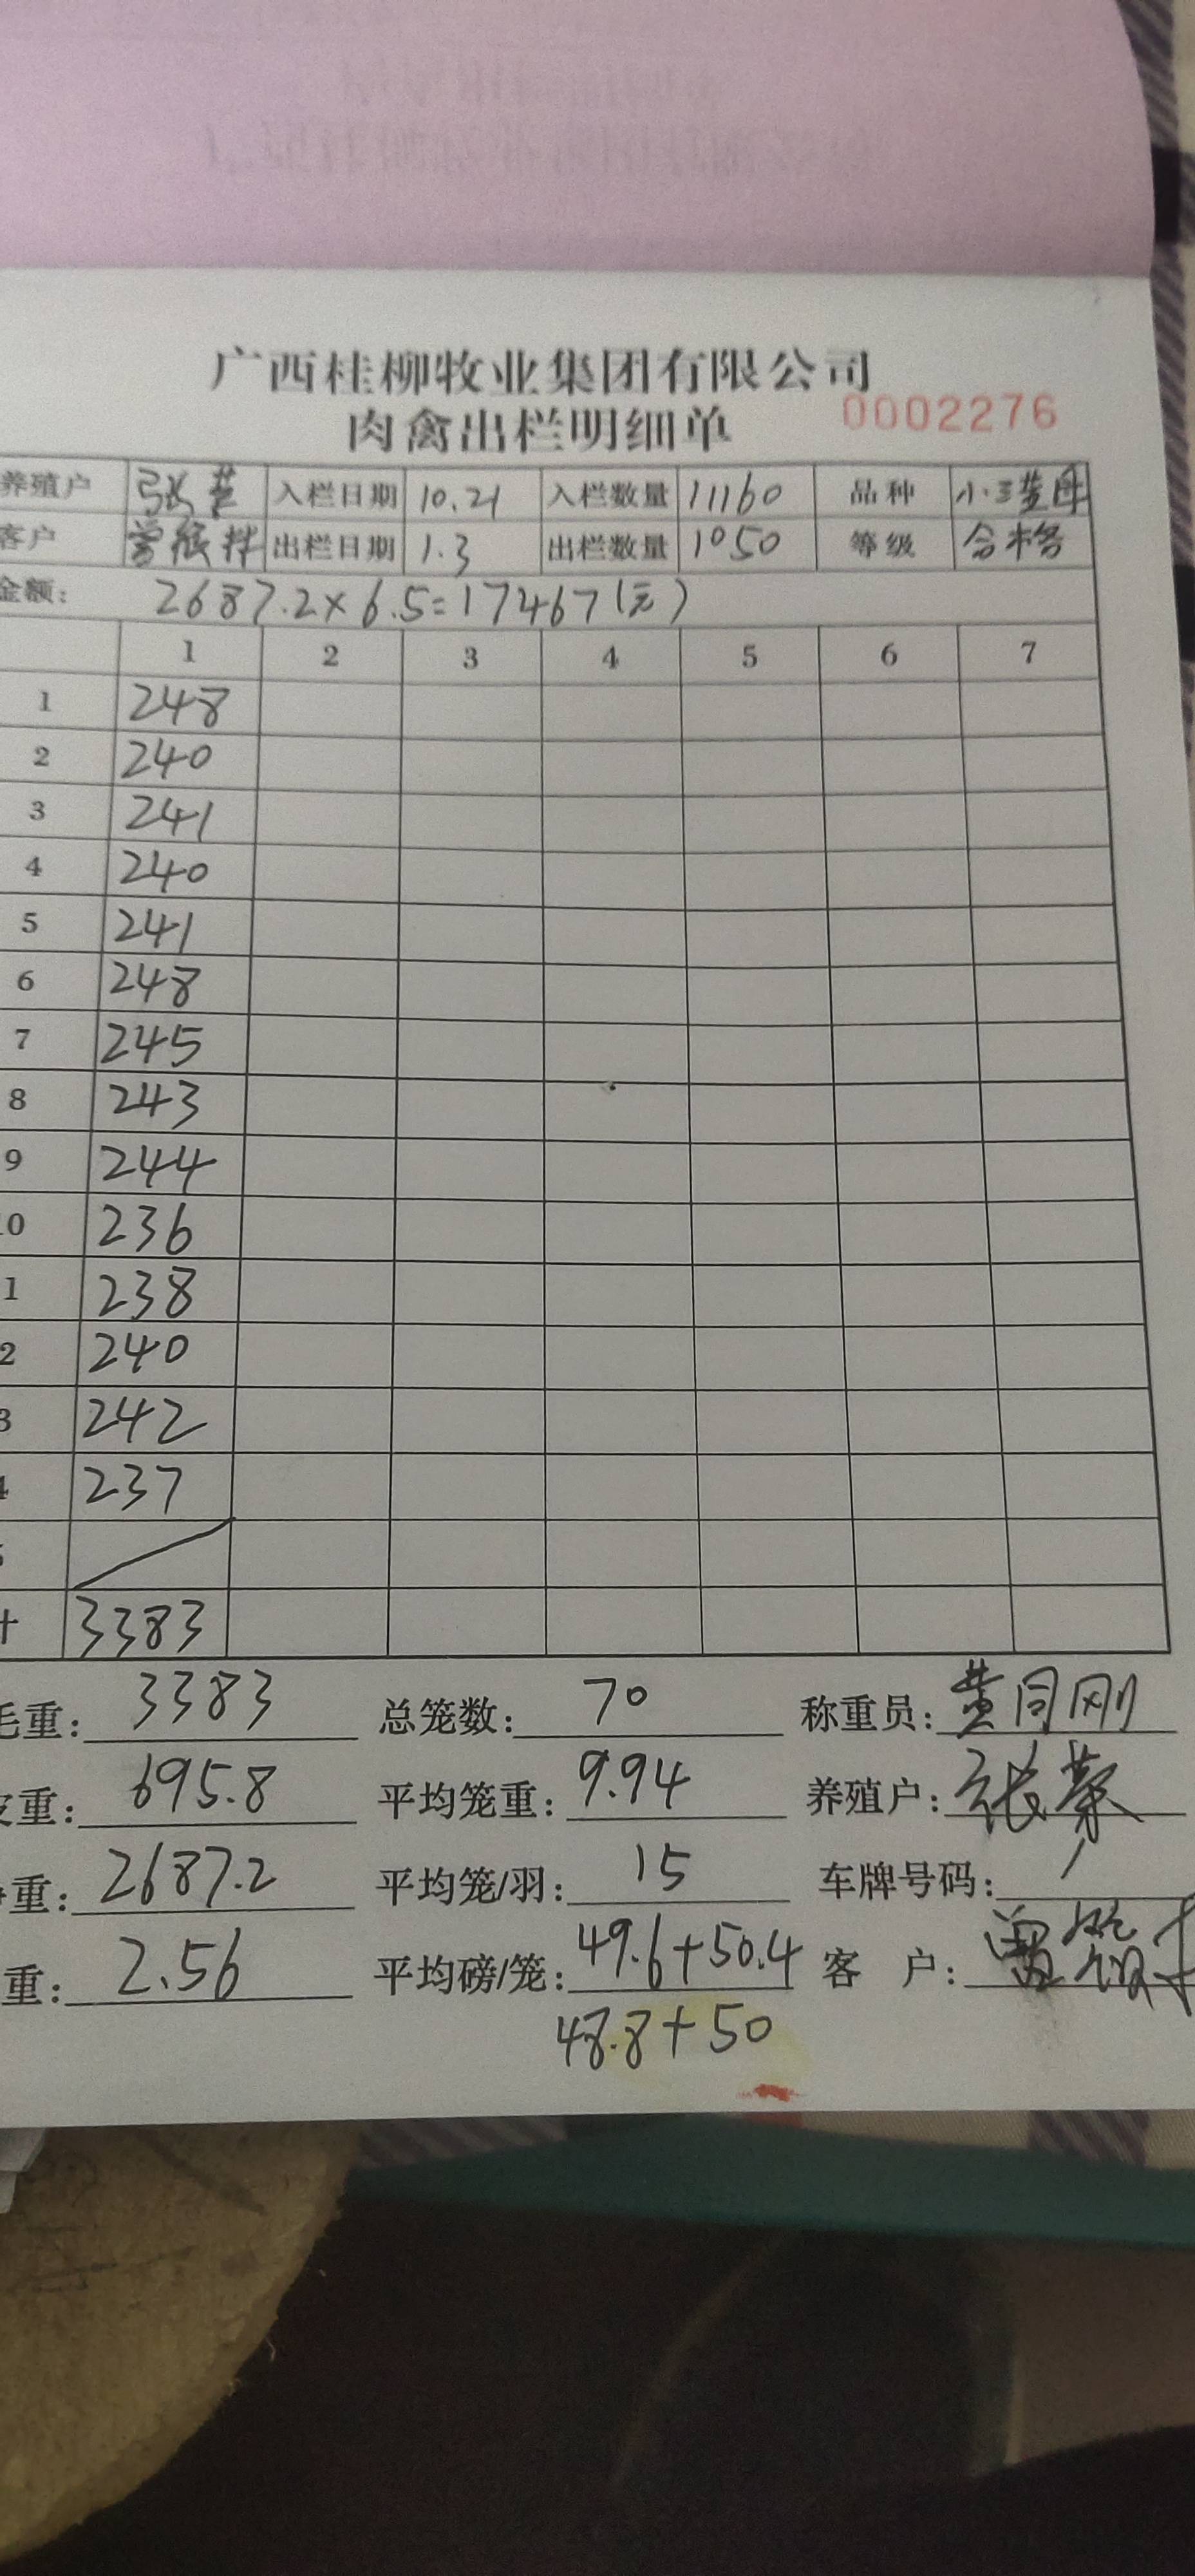 广西桂柳牧业集团有限公司
肉禽出栏明细单 0002276
养殖户 张 入栏日期 10.21 入栏数量 11160 品种 小三黄母
客户 曾 出栏日期 1.3 出栏数量 1050 等级 合格
金额: 2687.2×6.5=17467(元)
1 2 3 4 5 6 7
1 248
2 240
3 241
4 240
5 241
6 248
7 245
8 243
9 244
0 236
1 238
2 240
3 242
4 237
计 3383
毛重: 3383 总笼数: 70 称重员: 黄同刚
皮重: 695.8 平均笼重: 9.94 养殖户: 张荣
净重: 2687.2 平均笼/羽: 15 车牌号码: /
重: 2.56 平均磅/笼: 49.6+50.4 客 户: 曾
48.8+50